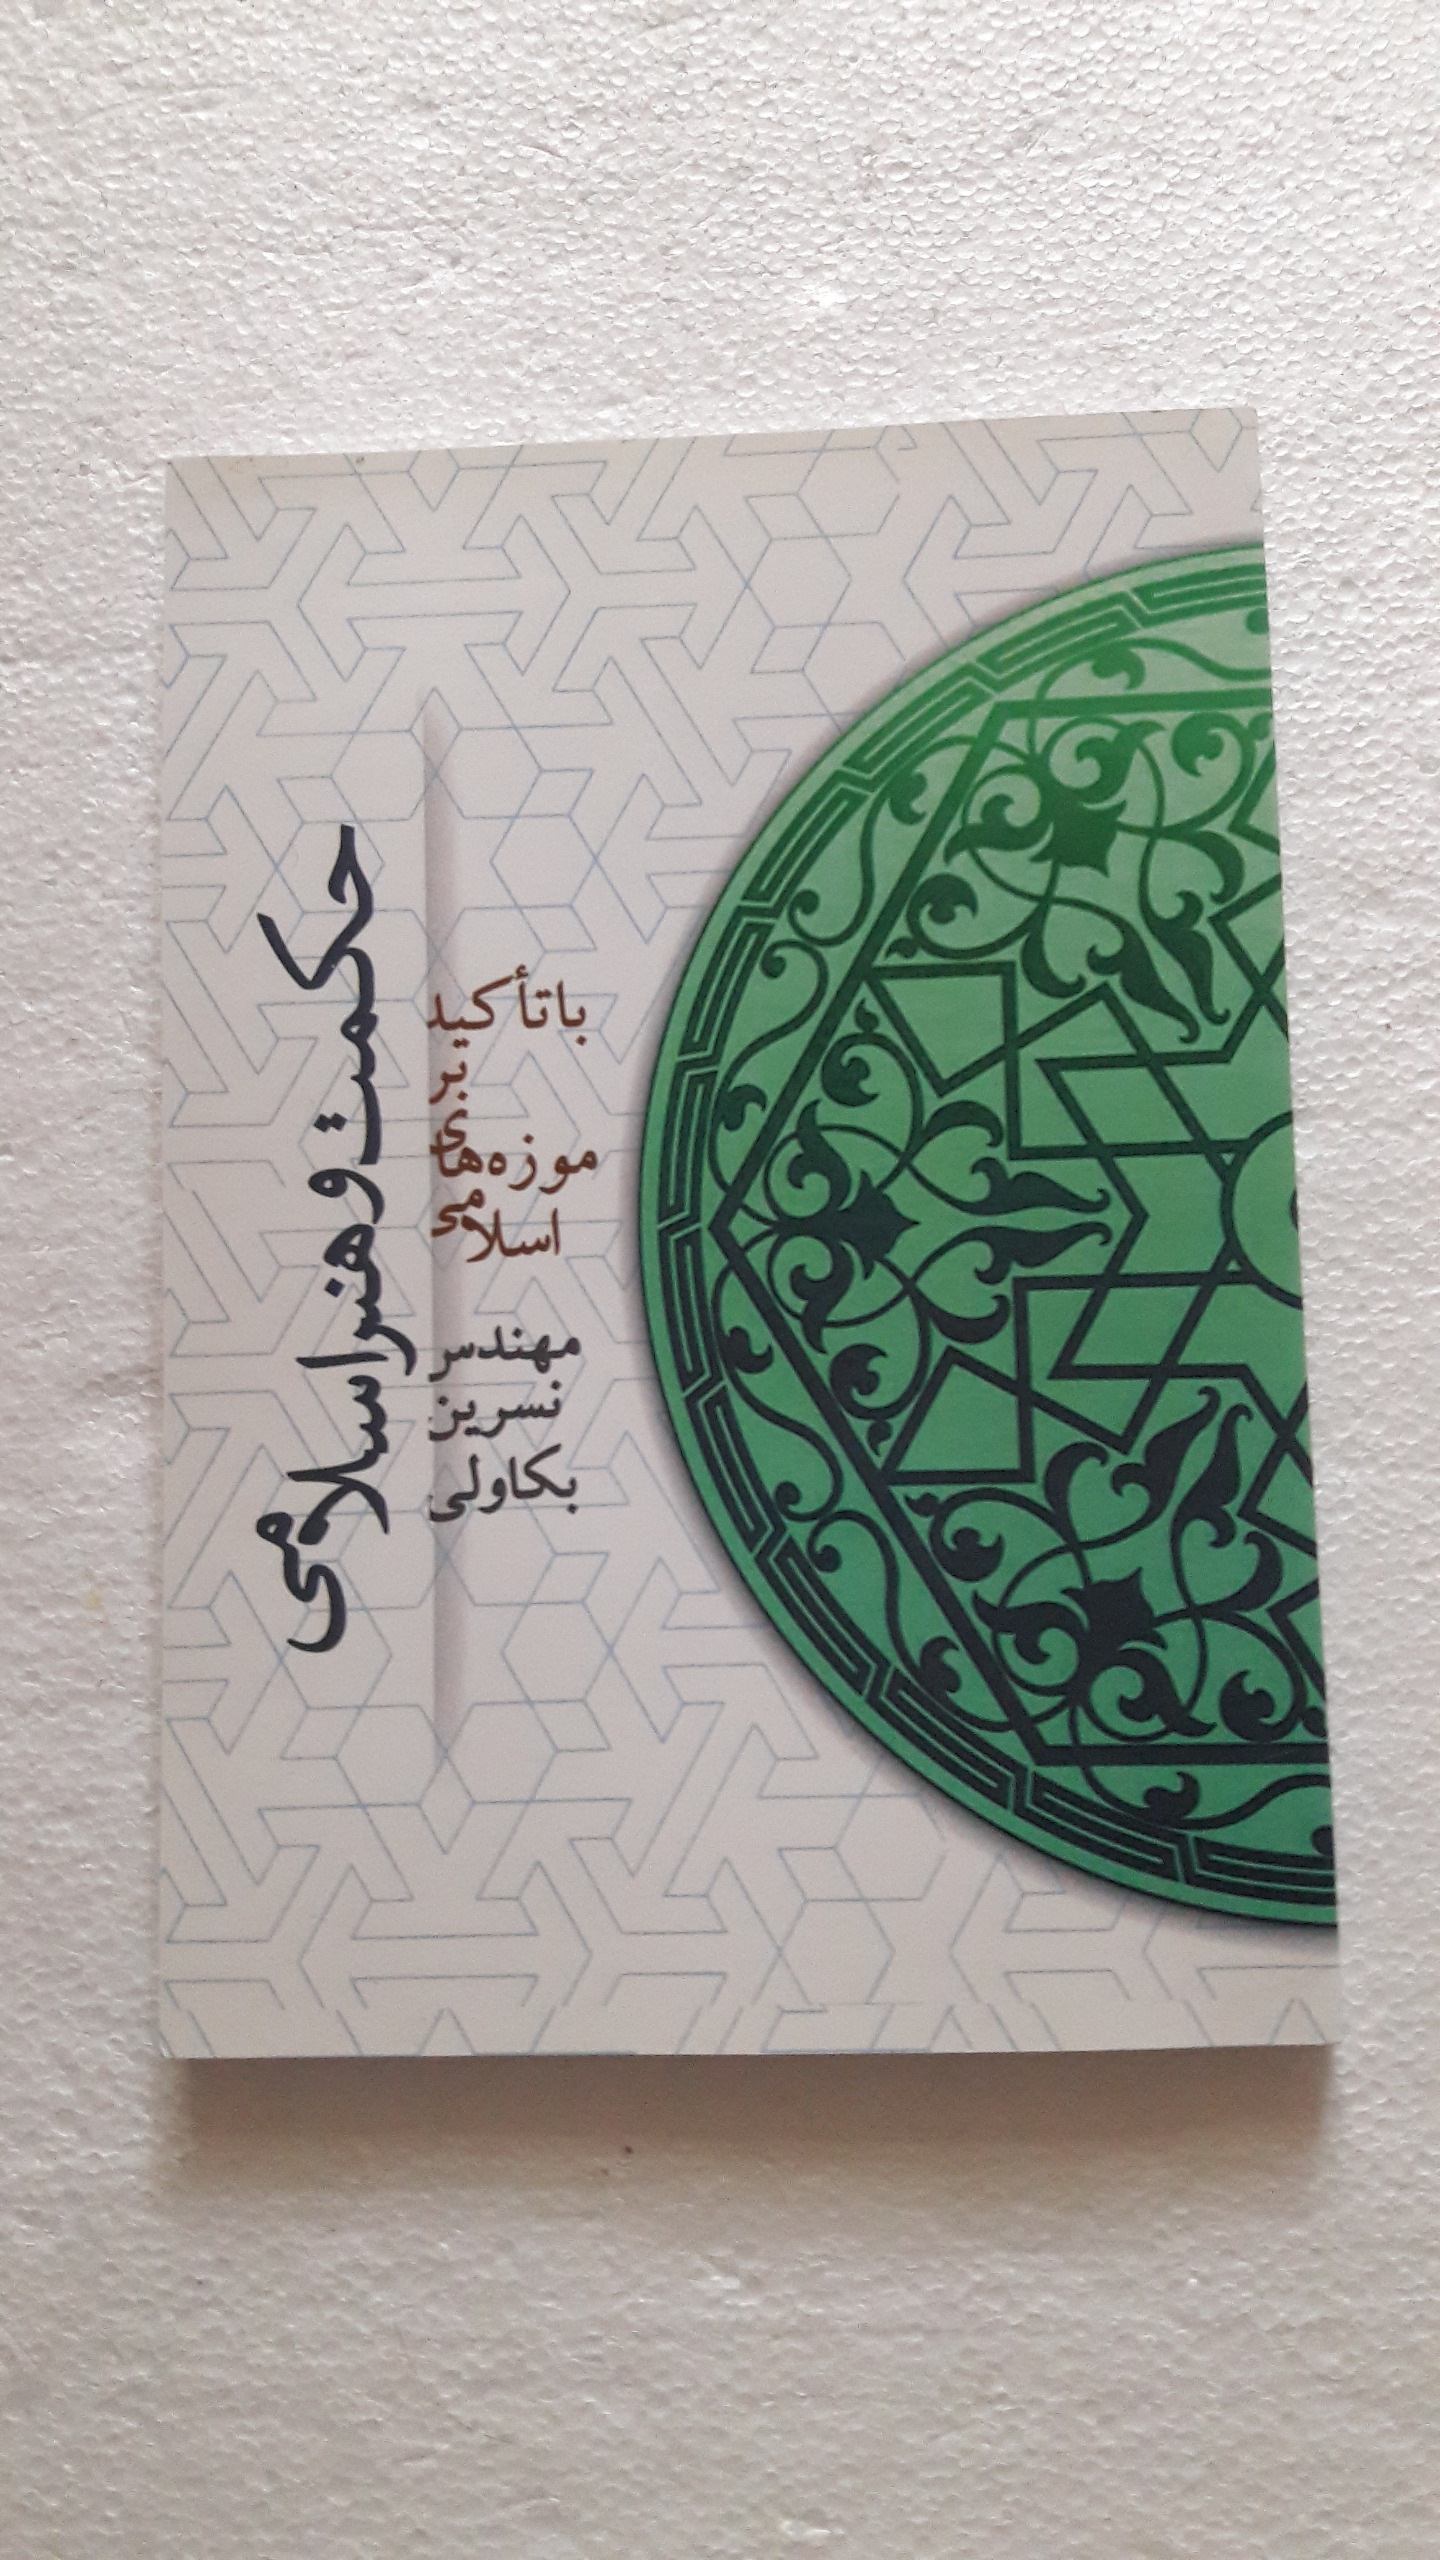 حکمت و هنر اسلامی
با تأکید
بر
موزه‌های
اسلامی
مهندس
نسرین
بکاولی